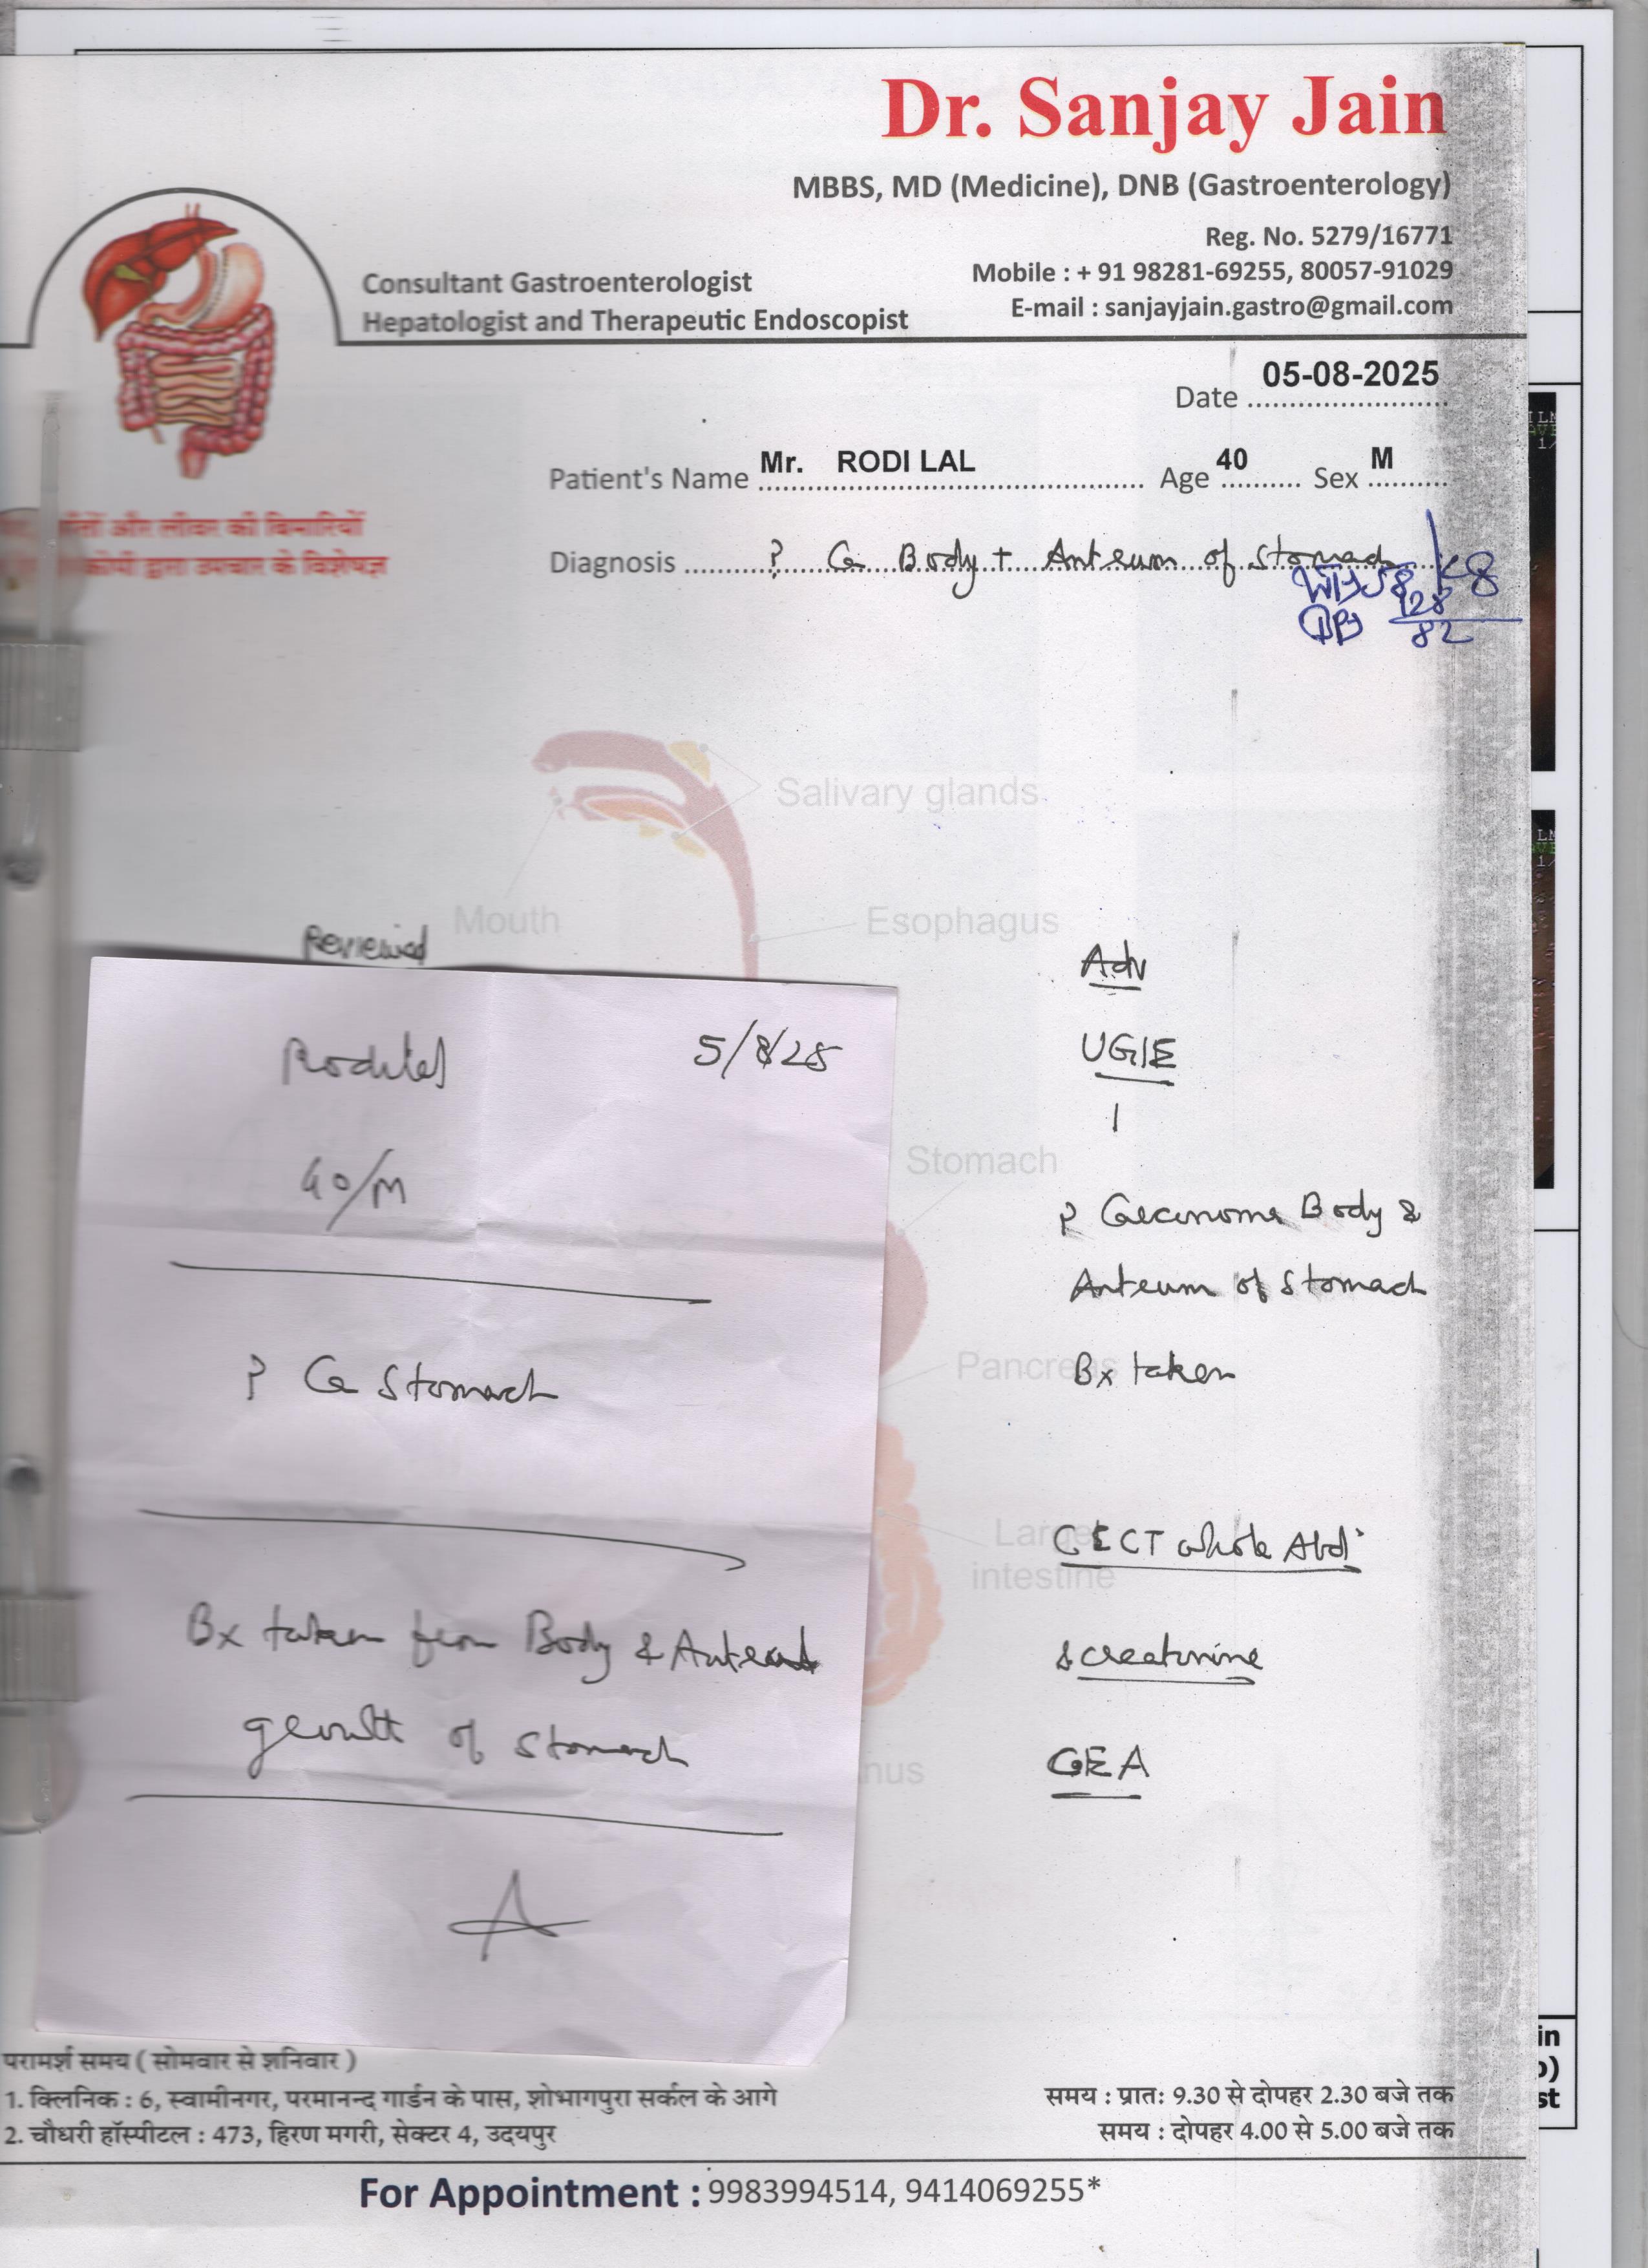 Dr. Sanjay Jain
MBBS, MD (Medicine), DNB (Gastroenterology)
Reg. No. 5279/16771
Mobile : + 91 98281-69255, 80057-91029
E-mail : sanjayjain.gastro@gmail.com
Consultant Gastroenterologist
Hepatologist and Therapeutic Endoscopist
Date 05-08-2025
Patient's Name Mr. RODI LAL Age 40 Sex M
आँतों और लीवर की बिमारियों
द्वारा उपचार के विशेषज्ञ
Diagnosis ? Ca Body + Antrum of Stomach
Wt 58 kg
BP 128/82
Salivary glands
Mouth
Esophagus
Reviewed
Adv
UGIE
Stomach
? Carcinoma Body &
Antrum of Stomach
Pancreas
Bx taken
Large
intestine
CECT whole Abd
S creatinine
GEA
Rodilal 5/8/25
40/M
? Ca Stomach
Bx taken from Body & Antrum
growth of stomach
परामर्श समय ( सोमवार से शनिवार )
1. क्लिनिक : 6, स्वामीनगर, परमानन्द गार्डन के पास, शोभागपुरा सर्कल के आगे समय : प्रातः 9.30 से दोपहर 2.30 बजे तक
2. चौधरी हॉस्पीटल : 473, हिरण मगरी, सेक्टर 4, उदयपुर समय : दोपहर 4.00 से 5.00 बजे तक
For Appointment : 9983994514, 9414069255*